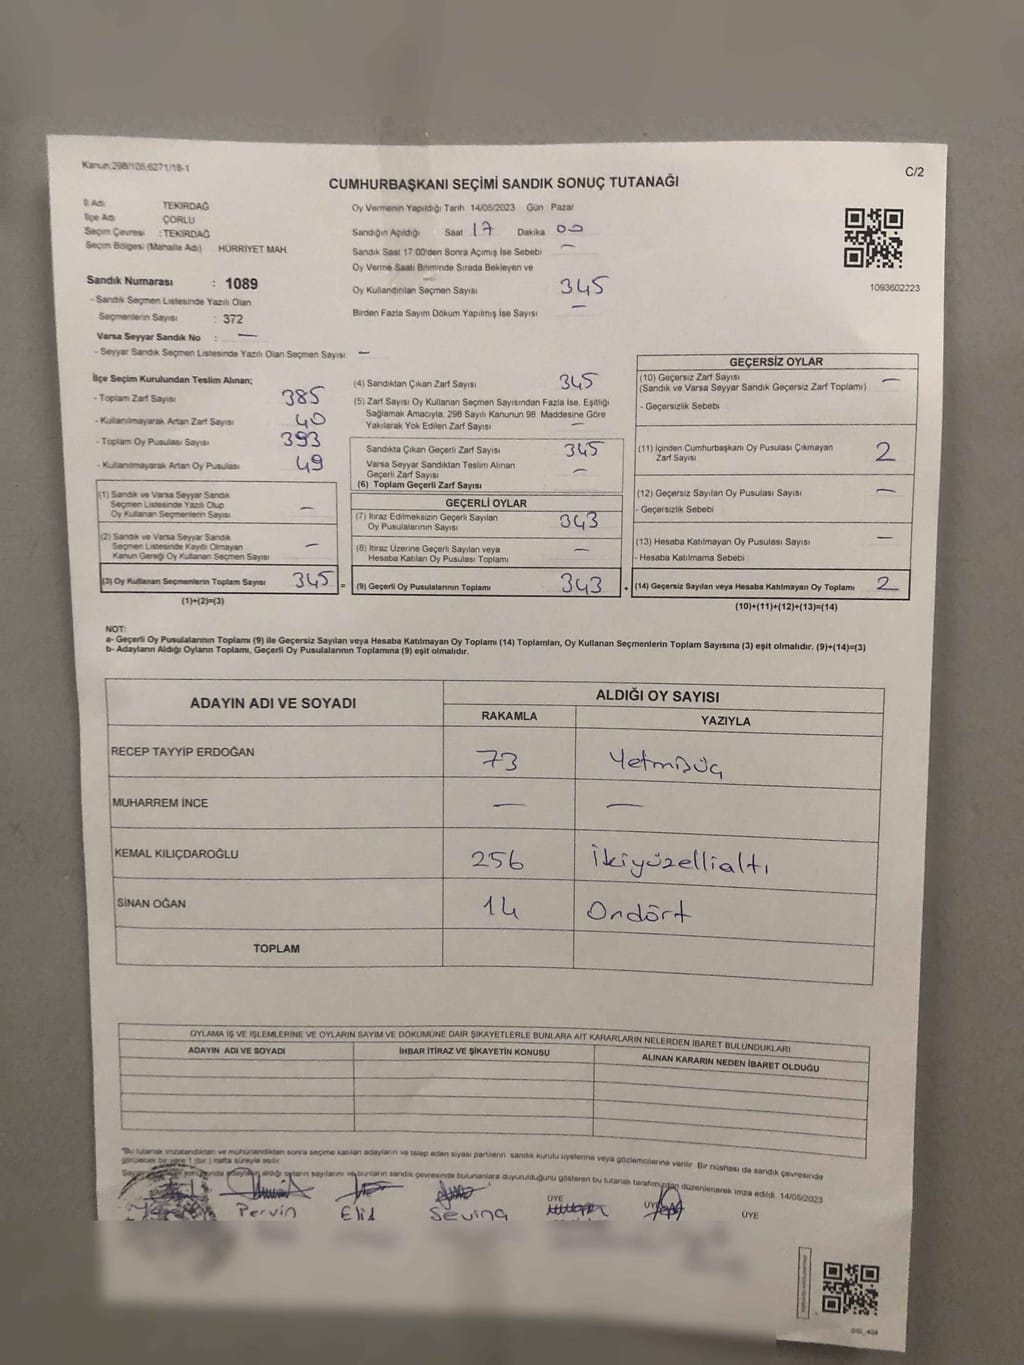 Kanun:298/105,6271/18-1
C/2
CUMHURBAŞKANI SEÇİMİ SANDIK SONUÇ TUTANAĞI
İl Adı TEKİRDAĞ
İlçe Adı ÇORLU
Seçim Çevresi : TEKİRDAĞ
Seçim Bölgesi (Mahalle Adı) HÜRRİYET MAH.
Sandık Numarası : 1089
- Sandık Seçmen Listesinde Yazılı Olan
Seçmenlerin Sayısı : 372
Varsa Seyyar Sandık No : —
- Seyyar Sandık Seçmen Listesinde Yazılı Olan Seçmen Sayısı —
Oy Vermenin Yapıldığı Tarih 14/05/2023 Gün Pazar
Sandığın Açıldığı Saat 17 Dakika 00
Sandık Saat 17:00'den Sonra Açılmış İse Sebebi —
Oy Verme Saati Bitiminde Sırada Bekleyen ve
Oy Kullandırılan Seçmen Sayısı 345
Birden Fazla Sayım Döküm Yapılmış İse Sayısı —
1093602223
İlçe Seçim Kurulundan Teslim Alınan;
- Toplam Zarf Sayısı 385
- Kullanılmayarak Artan Zarf Sayısı 40
- Toplam Oy Pusulası Sayısı 393
- Kullanılmayarak Artan Oy Pusulası 49
(1) Sandık ve Varsa Seyyar Sandık
Seçmen Listesinde Yazılı Olup
Oy Kullanan Seçmenlerin Sayısı —
(2) Sandık ve Varsa Seyyar Sandık
Seçmen Listesinde Kayıtlı Olmayan
Kanun Gereği Oy Kullanan Seçmen Sayısı —
(3) Oy Kullanan Seçmenlerin Toplam Sayısı 345 =
(1)+(2)=(3)
(4) Sandıktan Çıkan Zarf Sayısı 345
(5) Zarf Sayısı Oy Kullanan Seçmen Sayısından Fazla İse, Eşitliği
Sağlamak Amacıyla, 298 Sayılı Kanunun 98. Maddesine Göre
Yakılarak Yok Edilen Zarf Sayısı —
Sandıkta Çıkan Geçerli Zarf Sayısı 345
Varsa Seyyar Sandıktan Teslim Alınan
Geçerli Zarf Sayısı —
(6) Toplam Geçerli Zarf Sayısı
GEÇERLİ OYLAR
(7) İtiraz Edilmeksizin Geçerli Sayılan
Oy Pusulalarının Sayısı 343
(8) İtiraz Üzerine Geçerli Sayılan veya
Hesaba Katılan Oy Pusulaları Toplamı —
(9) Geçerli Oy Pusulalarının Toplamı 343 +
GEÇERSİZ OYLAR
(10) Geçersiz Zarf Sayısı —
(Sandık ve Varsa Seyyar Sandık Geçersiz Zarf Toplamı)
- Geçersizlik Sebebi
(11) İçinden Cumhurbaşkanı Oy Pusulası Çıkmayan
Zarf Sayısı 2
(12) Geçersiz Sayılan Oy Pusulası Sayısı —
- Geçersizlik Sebebi
(13) Hesaba Katılmayan Oy Pusulası Sayısı —
- Hesaba Katılmama Sebebi
(14) Geçersiz Sayılan veya Hesaba Katılmayan Oy Toplamı 2
(10)+(11)+(12)+(13)=(14)
NOT:
a- Geçerli Oy Pusulalarının Toplamı (9) ile Geçersiz Sayılan veya Hesaba Katılmayan Oy Toplamı (14) Toplamları, Oy Kullanan Seçmenlerin Toplam Sayısına (3) eşit olmalıdır. (9)+(14)=(3)
b- Adayların Aldığı Oyların Toplamı, Geçerli Oy Pusulalarının Toplamına (9) eşit olmalıdır.
ADAYIN ADI VE SOYADI
ALDIĞI OY SAYISI
RAKAMLA YAZIYLA
RECEP TAYYİP ERDOĞAN 73 Yetmişüç
MUHARREM İNCE — —
KEMAL KILIÇDAROĞLU 256 İkiyüzellialtı
SİNAN OĞAN 14 Ondört
TOPLAM
OYLAMA İŞ VE İŞLEMLERİNE VE OYLARIN SAYIM VE DÖKÜMÜNE DAİR ŞİKAYETLERLE BUNLARA AİT KARARLARIN NELERDEN İBARET BULUNDUKLARI
ADAYIN ADI VE SOYADI İHBAR İTİRAZ VE ŞİKAYETİN KONUSU ALINAN KARARIN NEDEN İBARET OLDUĞU
"Bu tutanak imzalandıktan ve mühürlendikten sonra seçime katılan adayların ve talep eden siyasi partilerin sandık kurulu üyelerine veya gözlemcilerine verilir. Bir nüshası da sandık çevresinde
görülecek bir yere 1 (bir) hafta süreyle asılır
sonucunda adayların aldığı oyların sayılarını ve bunların sandık çevresinde bulunanlara duyurulduğunu gösteren bu tutanak tarafımızdan düzenlenerek imza edildi. 14/05/2023
Pervin Elif Sevinç ÜYE ÜYE ÜYE